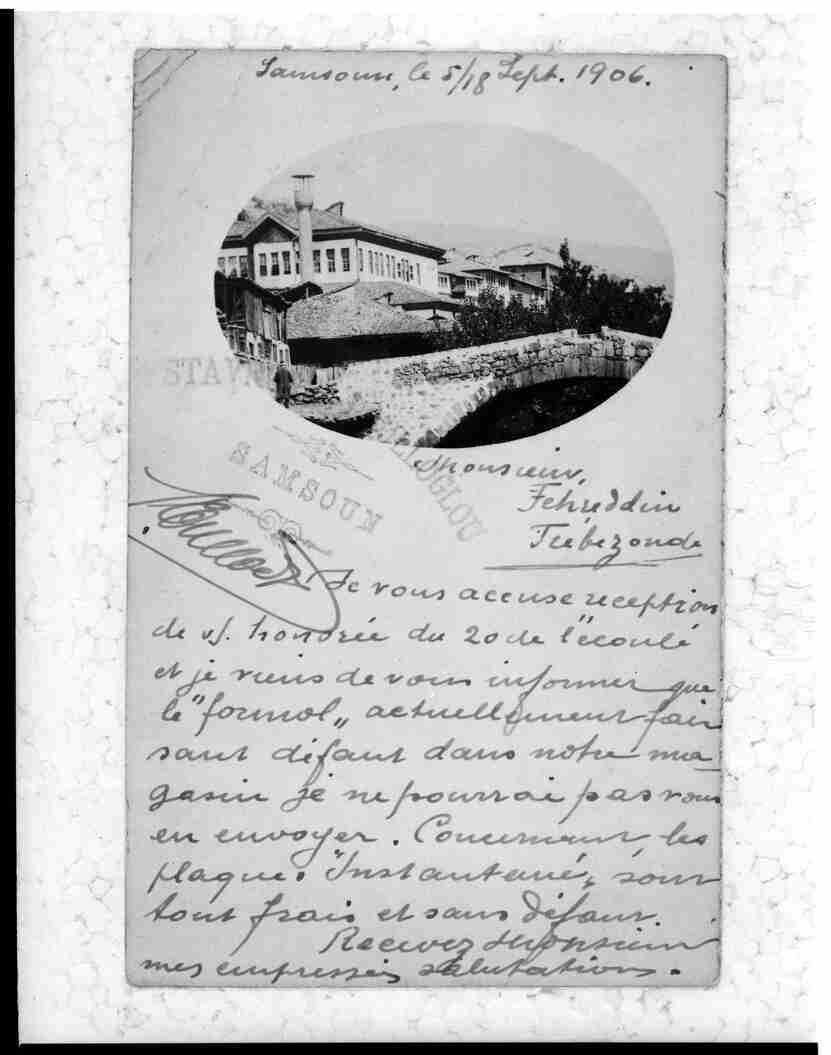 Samsoun, le 5/18 Sept. 1906.
STAV
LOGLOU
SAMSOUN
Monsieur,
Fehreddin
Trébizonde
Je vous accuse reception
de v/. honorée du 20 de l'écoulé
et je viens de vous informer que
le "formol„ actuellement fai
sant défaut dans notre ma
gasin je ne pourrai pas vous
en envoyer. Concernant les
plaque. "Instantané„ sont
tout frais et sans défaut.
Recevez Monsieur
mes empressés salutations.